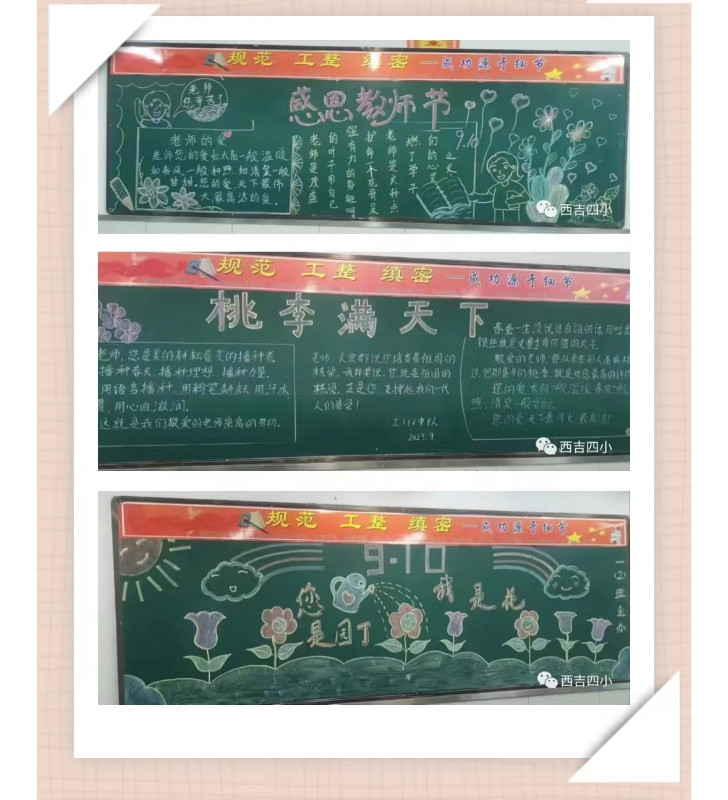 规范 工整 缜密 —成功源于细节
感恩教师节
老师
您辛苦了
老师的爱
老师您的爱如太阳一般温暖
如春风一般和煦如清泉一般
甘甜.您的爱.天下最伟
大.最高洁的爱.
老师是茂盛
的叶子用自己
强有力的身躯呵
护每一个花骨朵
老师是火种点
燃了学子
们的心灵
之火
9.10
西吉四小
规范 工整 缜密 —成功源于细节
桃李满天下
老师,您是美的耕耘者美的播种者
播种春天,播种理想,播种力量.
用语言播种,用粉笔耕耘,用汗水
用心血滋润.
这就是我们敬爱的老师崇高的劳动.
老师,人家都说您培育着祖国的
栋梁,我却要说,您就是祖国的
栋梁.正是您,支撑起我们一代
人的脊梁!
2023.9
春蚕一生没说过自诩的话,那吐出的
敬爱的老师,您从未在别人面前
您的爱,太阳一般温暖,春风一般
煦,清泉一般甘甜.
您的爱,天下最伟大,最高洁!
西吉四小
规范 工整 缜密 —成功源于细节
9.10
您是园丁
我是花
一(2)班主办
西吉四小